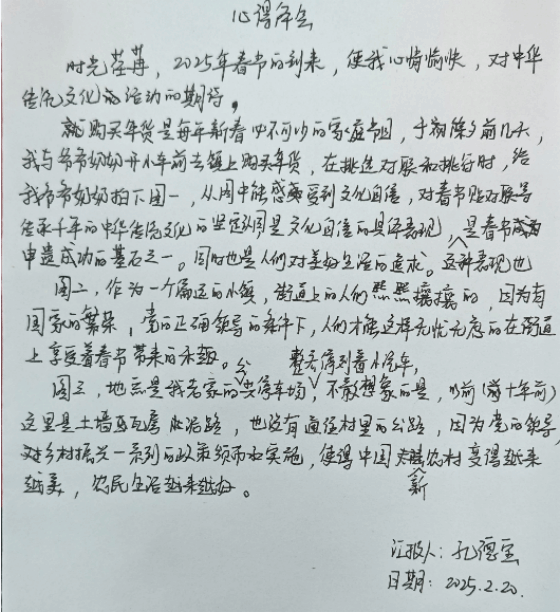 心得体会
时光荏苒，2025年春节的到来，使我心情愉快，对中华
传统文化的活动的期待。
就购买年货是每年新春必不可少的家庭节目，于初除夕前几天，
我与爷爷奶奶开小车前去镇上购买年货，在挑选对联和挑行时，给
我爷爷奶奶拍下图一，从图中能感受到文化自信，对春节贴对联等
传承千年的中华传统文化的坚定认同是文化自信的具体表现，是春节成为
申遗成功的基石之一。同时也是人们对美好生活的追求。这种表现也
图二，作为一个偏远的小镇，街道上的人们熙熙攘攘的，因为有
国家的繁荣，党的正确领导的条件下，人们才能这样无忧无虑的在街道
上享受着春节带来的乐趣。
图三，地点是我老家的公共停车场，整齐停到着小汽车，不敢想象的是，以前（前十年前）
这里是土墙瓦房 水泥路，也没有通往村里的公路，因为党的领导，
对乡村振兴一系列的政策颁布和实施，使得中国新农村变得越来
越美，农民生活越来越好。
汇报人：孔德宝
日期：2025.2.20.